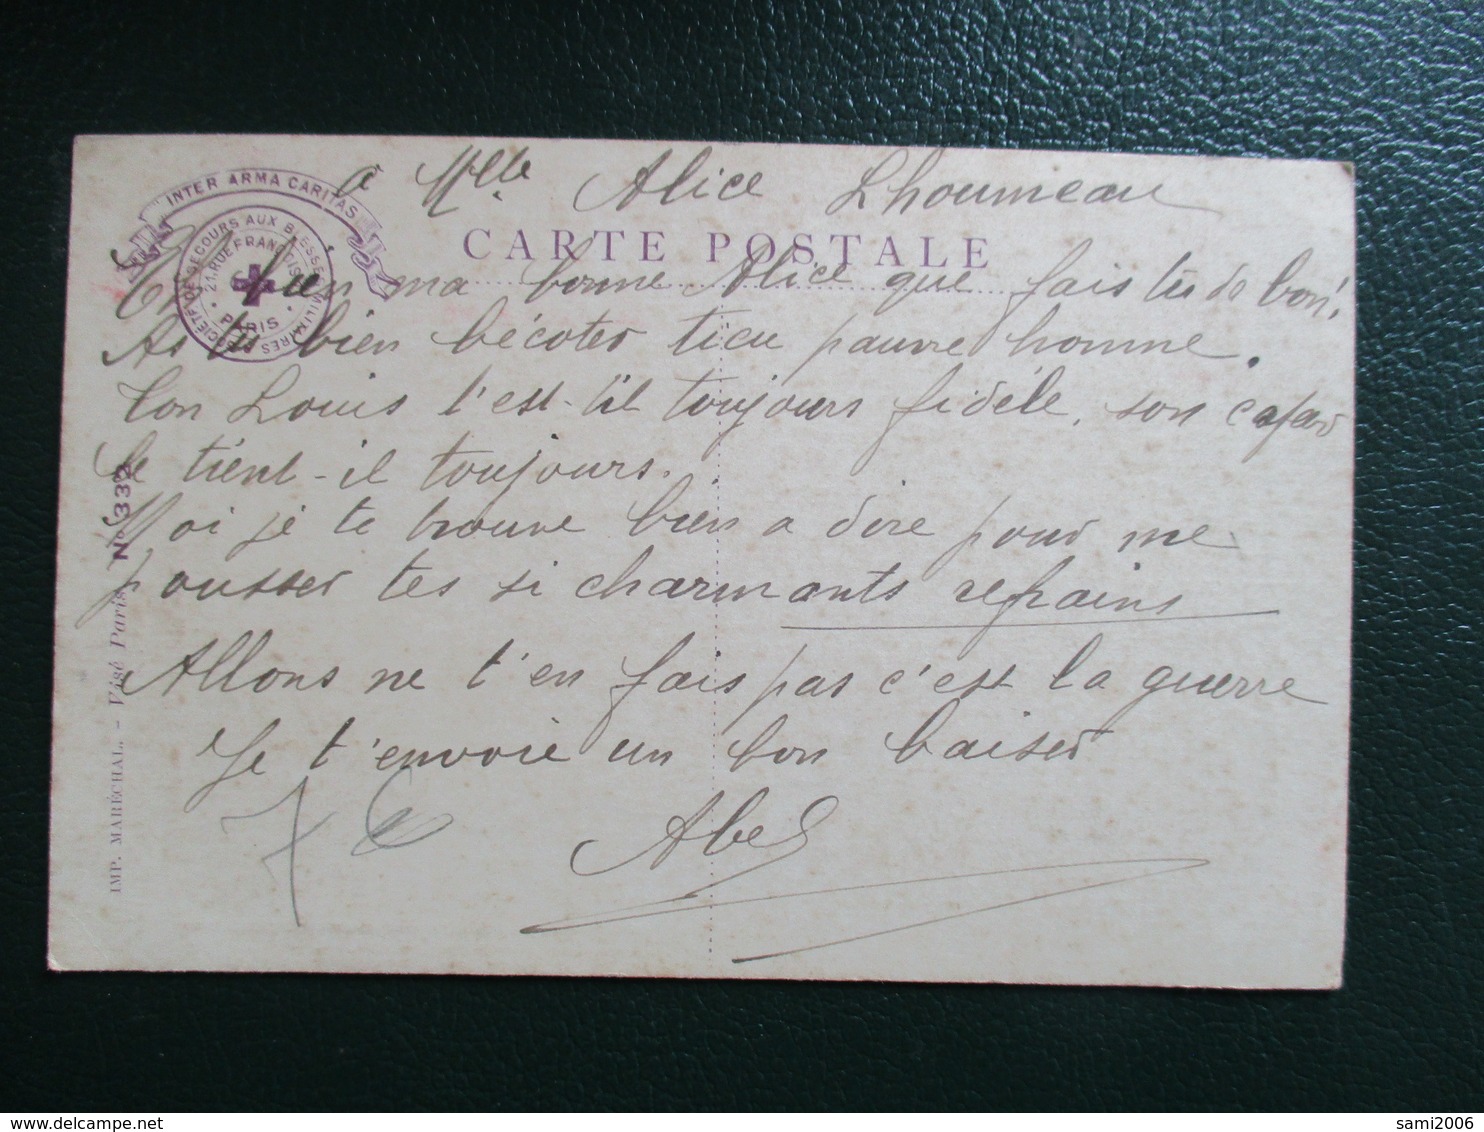 à Mlle Alice Lhoumeau
INTER ARMA CARITAS
SOCIÉTÉ DE SECOURS AUX BLESSES MILITAIRES
21 RUE FRANCOIS 1
PARIS
CARTE POSTALE
Eh bien ma bonne Alice que fais tu de bon,
As tu bien bécoter pauvre homme.
Ton Louis t'est-t'il toujours fidéle, son cafar
le tient-il toujours.
Moi je te trouve bien a dire pour me
pousser tes si charmants refrains
Allons ne t'en fais pas c'est la guerre
Je t'envoie un bon baiser
Abel
IMP. MARÉCHAL. - Visé Paris N° 332
sami2006